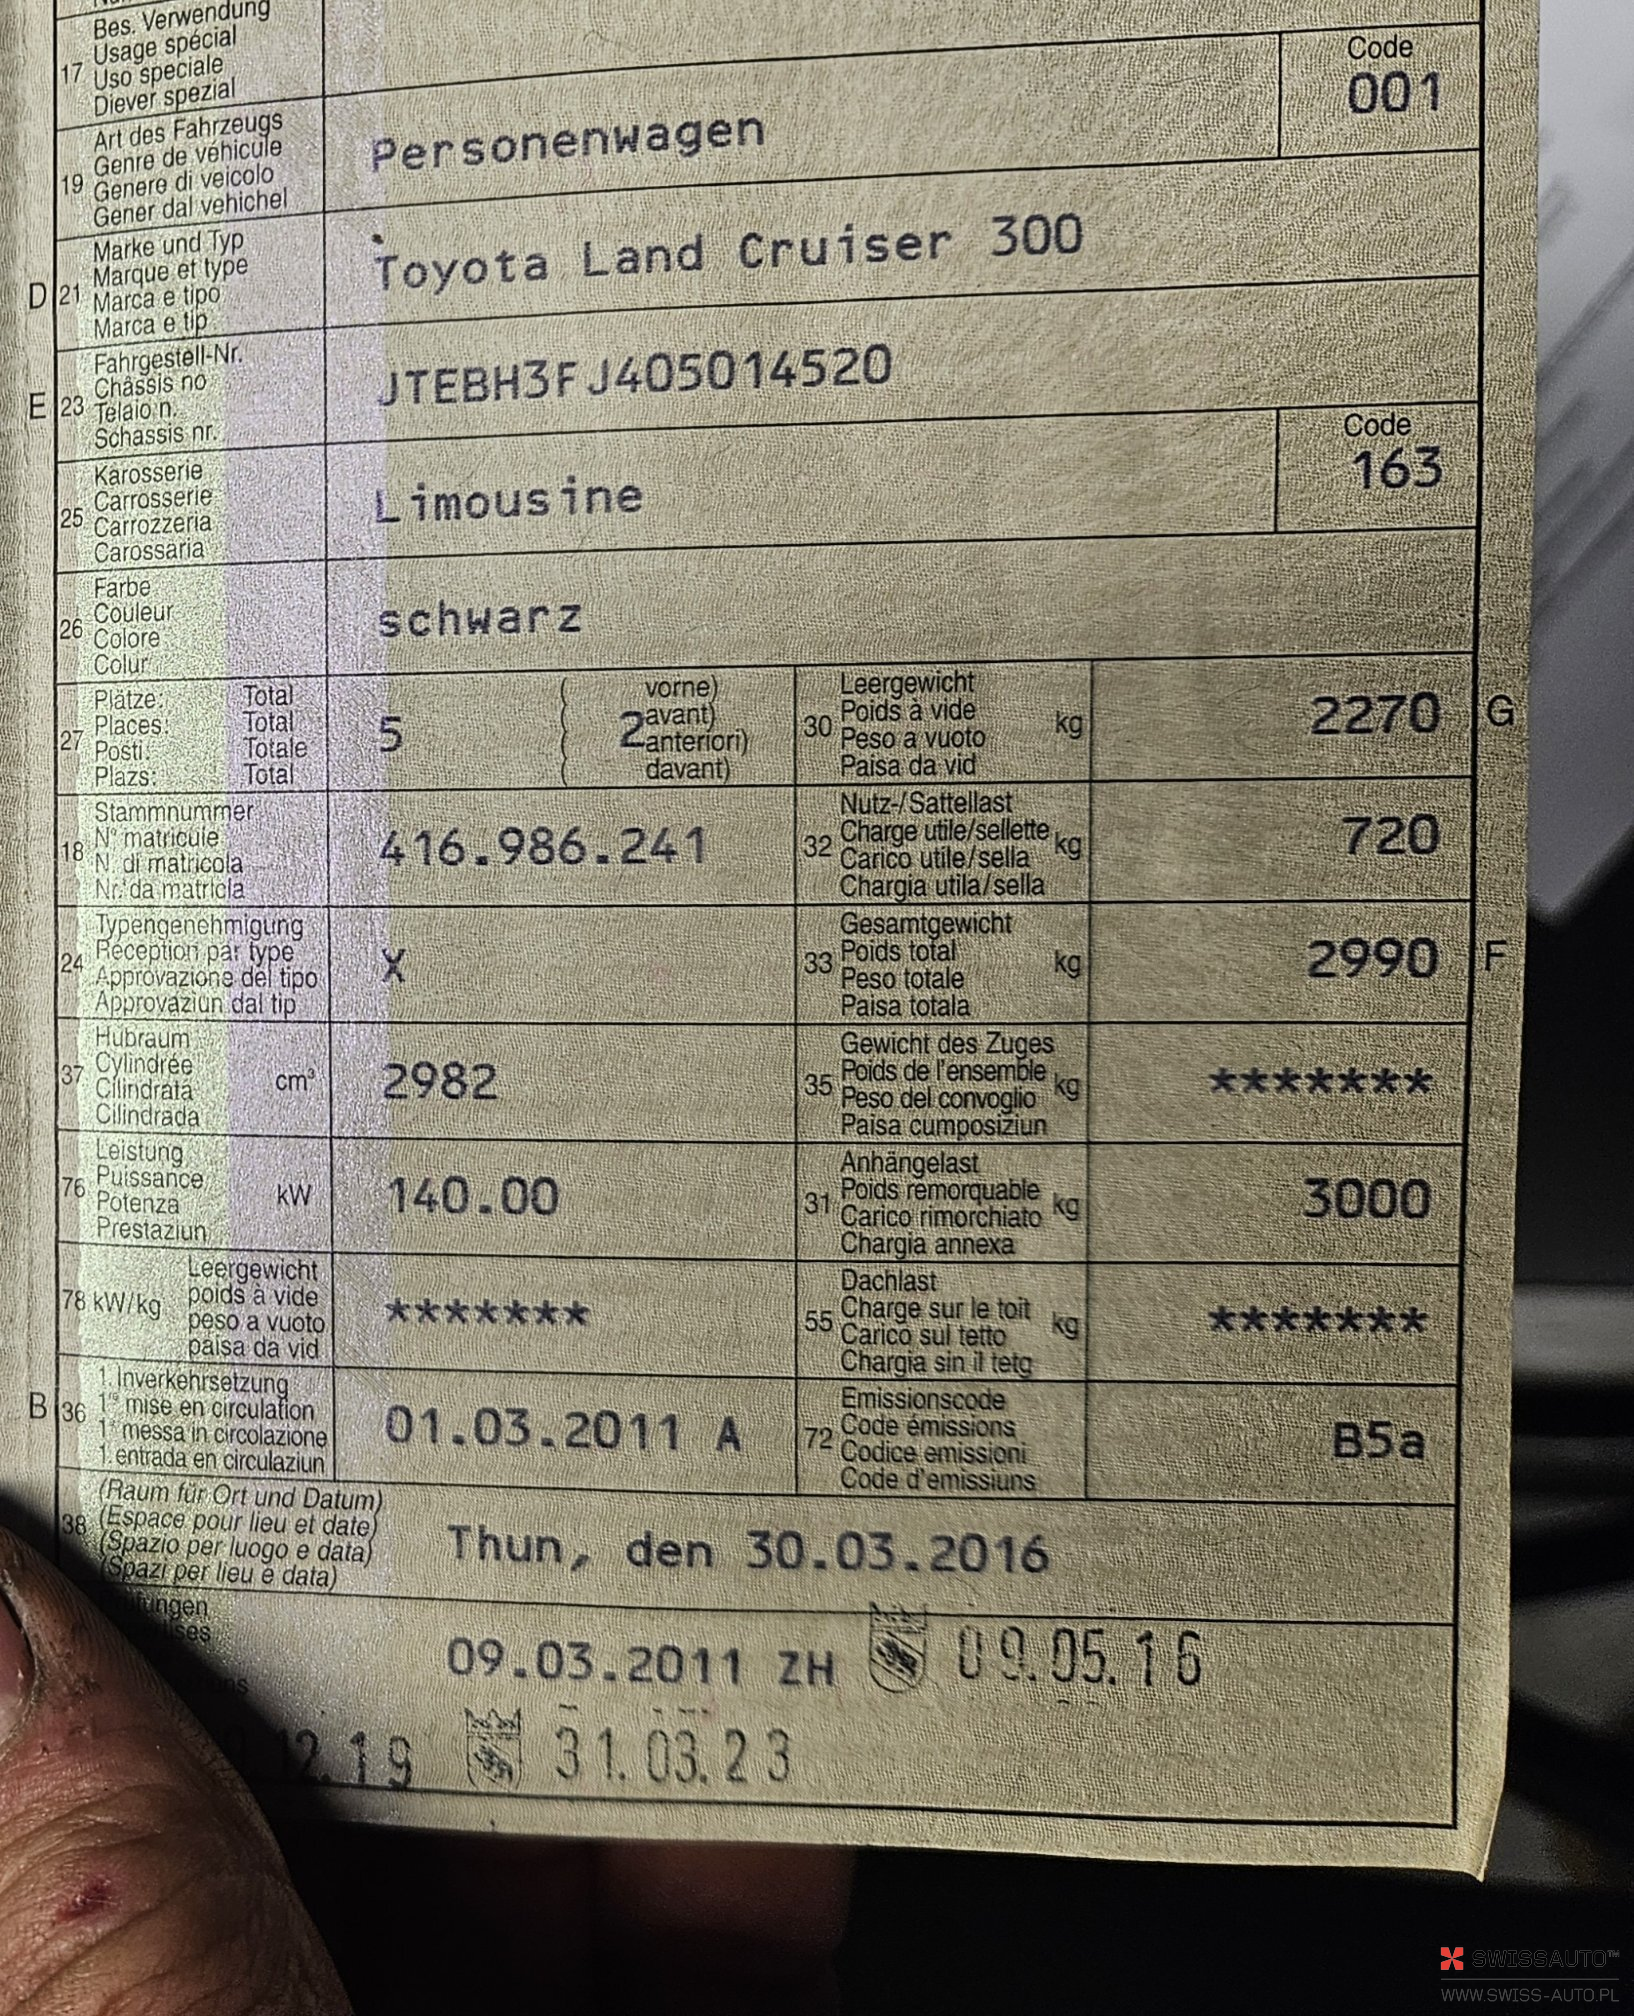 Bes. Verwendung
17 Usage spécial
Uso speciale
Diever spezial
Code
001
Art des Fahrzeugs
19 Genre de véhicule
Genere di veicolo
Gener dal vehichel
Personenwagen
Marke und Typ
D 21 Marque et type
Marca e tipo
Marca e tip
Toyota Land Cruiser 300
Fahrgestell-Nr.
E 23 Châssis no
Telaio n.
Schassis nr.
JTEBH3FJ405014520
Karosserie
25 Carrosserie
Carrozzeria
Carossaria
Limousine
Code
163
Farbe
26 Couleur
Colore
Colur
schwarz
Plätze: Total
27 Places: Total
Posti: Totale
Plazs: Total
5
( vorne)
( 2 avant)
( anteriori)
( davant)
Leergewicht
30 Poids à vide kg
Peso a vuoto
Paisa da vid
2270 G
Stammnummer
18 N° matricule
N. di matricola
Nr. da matricla
416.986.241
Nutz-/Sattellast
32 Charge utile/sellette kg
Carico utile/sella
Chargia utila/sella
720
Typengenehmigung
24 Réception par type
Approvazione del tipo
Approvaziun dal tip
X
Gesamtgewicht
33 Poids total kg
Peso totale
Paisa totala
2990 F
Hubraum
37 Cylindrée cm³
Cilindrata
Cilindrada
2982
Gewicht des Zuges
35 Poids de l'ensemble kg
Peso del convoglio
Paisa cumposiziun
*******
Leistung
76 Puissance kW
Potenza
Prestaziun
140.00
Anhängelast
31 Poids remorquable kg
Carico rimorchiato
Chargia annexa
3000
Leergewicht
78 kW/kg poids à vide
peso a vuoto
paisa da vid
*******
Dachlast
55 Charge sur le toit kg
Carico sul tetto
Chargia sin il tetg
*******
1. Inverkehrsetzung
B 36 1re mise en circulation
1a messa in circolazione
1. entrada en circulaziun
01.03.2011 A
Emissionscode
72 Code émissions
Codice emissioni
Code d'emissiuns
B5a
(Raum für Ort und Datum)
38 (Espace pour lieu et date)
(Spazio per luogo e data)
(Spazi per lieu e data)
Thun, den 30.03.2016
09.03.2011 ZH 09.05.16
12.19 31.03.23
SWISSAUTO™
WWW.SWISS-AUTO.PL